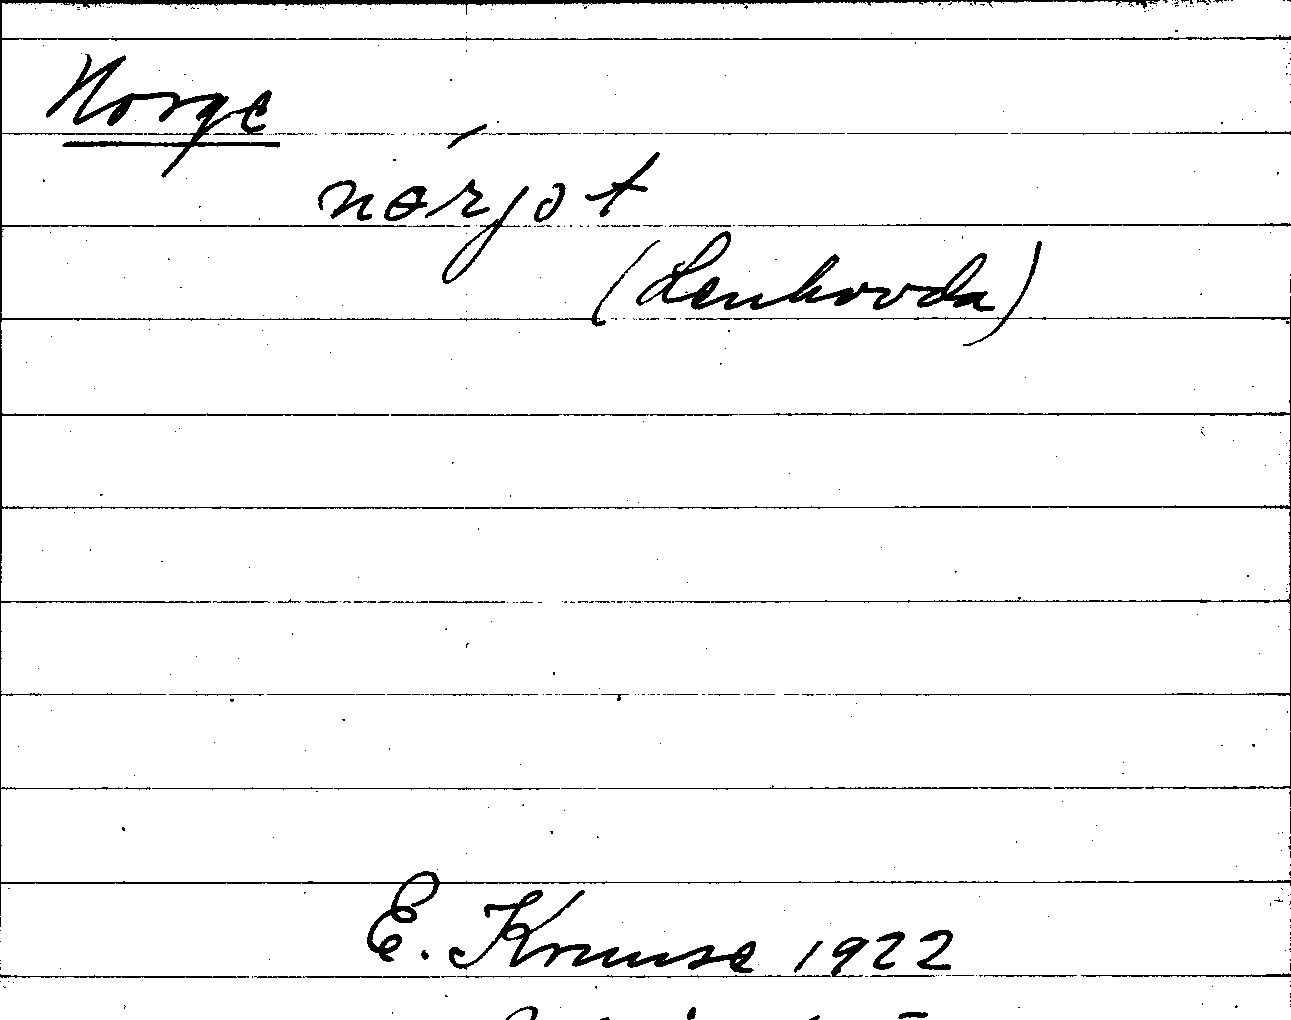 Norge
nɵ́rjot
(Lenhovda)
E. Kruuse 1922